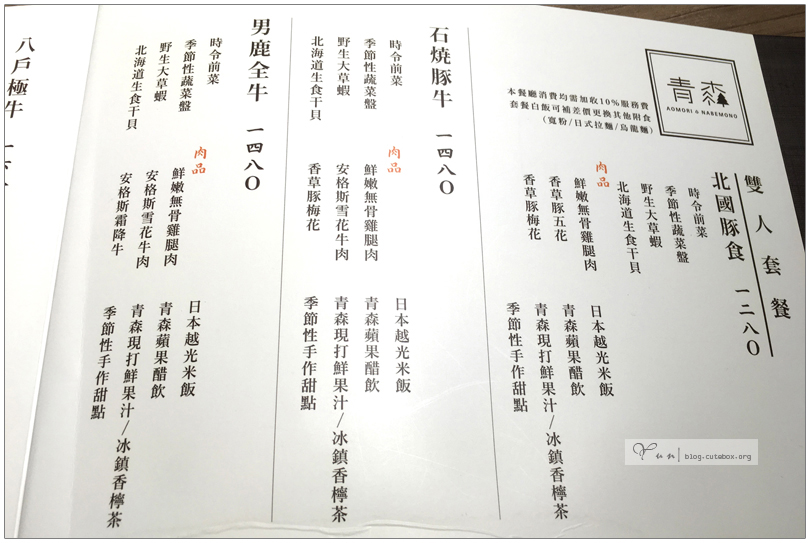 青森
AOMORI の NABEMONO
本餐廳消費均需加收10%服務費
套餐白飯可補差價更換其他附食
（寬粉/日式拉麵/烏龍麵）
雙人套餐
北國豚食 一二八〇
時令前菜
季節性蔬菜盤
野生大草蝦
北海道生食干貝
肉品
鮮嫩無骨雞腿肉
香草豚五花
香草豚梅花
日本越光米飯
青森蘋果醋飲
青森現打鮮果汁/冰鎮香檸茶
季節性手作甜點
石燒豚牛 一四八〇
時令前菜
季節性蔬菜盤
野生大草蝦
北海道生食干貝
肉品
鮮嫩無骨雞腿肉
安格斯雪花牛肉
香草豚梅花
日本越光米飯
青森蘋果醋飲
青森現打鮮果汁/冰鎮香檸茶
季節性手作甜點
男鹿全牛 一四八〇
時令前菜
季節性蔬菜盤
野生大草蝦
北海道生食干貝
肉品
鮮嫩無骨雞腿肉
安格斯雪花牛肉
安格斯霜降牛
日本越光米飯
青森蘋果醋飲
青森現打鮮果汁/冰鎮香檸茶
季節性手作甜點
八戶極牛 一六八
Yun
blog.cutebox.org